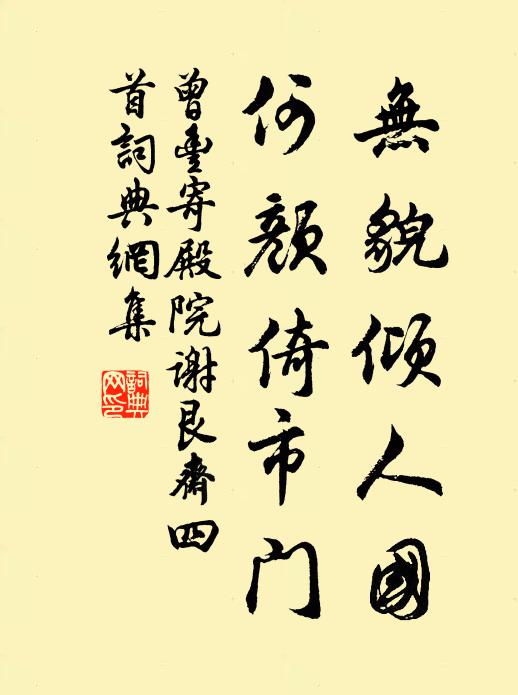 無貌傾人國
何顏倚市門
曾豊寄殿院謝艮齋四
首詞典網集
詞典
网印